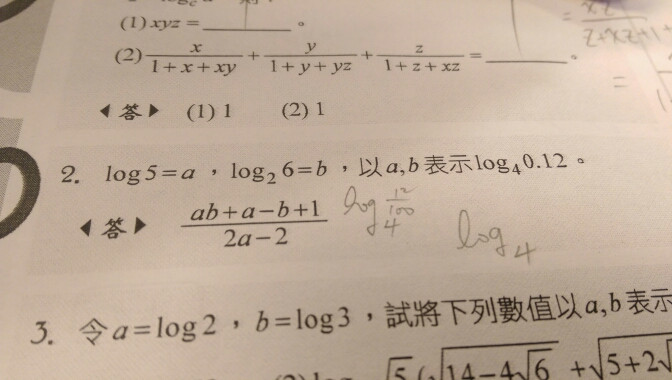 (1) xyz = ________ 。
(2) x/(1+x+xy) + y/(1+y+yz) + z/(1+z+xz) = ________ 。
◀答▶ (1) 1 (2) 1
2. log5=a，log₂6=b，以a,b表示log₄0.12。
◀答▶ (ab+a−b+1)/(2a−2) log₄ 12/100 log₄
3. 令a=log2，b=log3，試將下列數值以a,b表示
√5(√(14−4√6) + √(5+2√